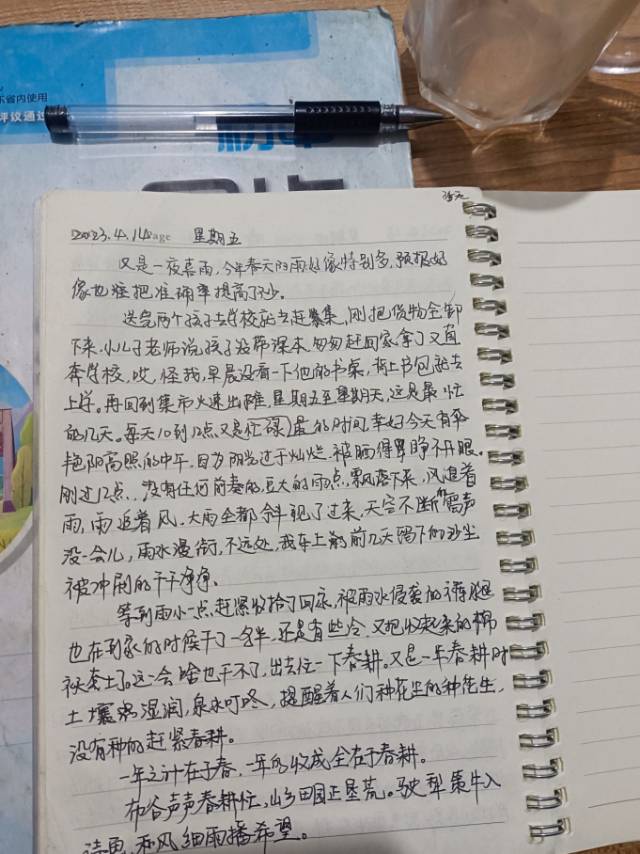 省内使用
评议通过
2023.4.14 星期五
又是一夜喜雨,今年春天的雨好像特别多,预报好
像也往把准确率提高了沙。
送完两个孩子去学校就去赶集,刚把货物全卸
下来,小儿子老师说,孩子没带课本,匆匆赶回家,拿了又直
奔学校,哎,怪我,早晨没看一下他的书桌,背上书包就去
上学。再回到集市火速出摊,星期五至星期天,这是最忙
的几天。每天10到12点又是忙碌的时间,幸好今天有伞
艳阳高照的中午,因为阳光过于灿烂,被晒得睁不开眼。
刚过12点,没有任何前奏的,豆大的雨点,飘落下来,风追着
雨,雨追着风,大雨全都斜视了过来,天空不断有雷声
没一会儿,雨水漫街,不远处,我车上的前几天留下的沙尘
被冲刷的干干净净。
等到雨小一点,赶紧收拾了回家,被雨水侵袭的裤腿
也在到家的时候干了一多半,还是有些冷,又把收起来的棉
袄套上了。这一会啥也干不了,出去住一下春耕。又是一年春耕时
土壤湿润,泉水叮咚,提醒着人们种花生的种花生,
没有种的赶紧春耕。
一年之计在于春,一年的收成全在于春耕。
布谷声声春耕忙,山乡田园正垦荒。驶犁策牛入
诗画,和风细雨播希望。